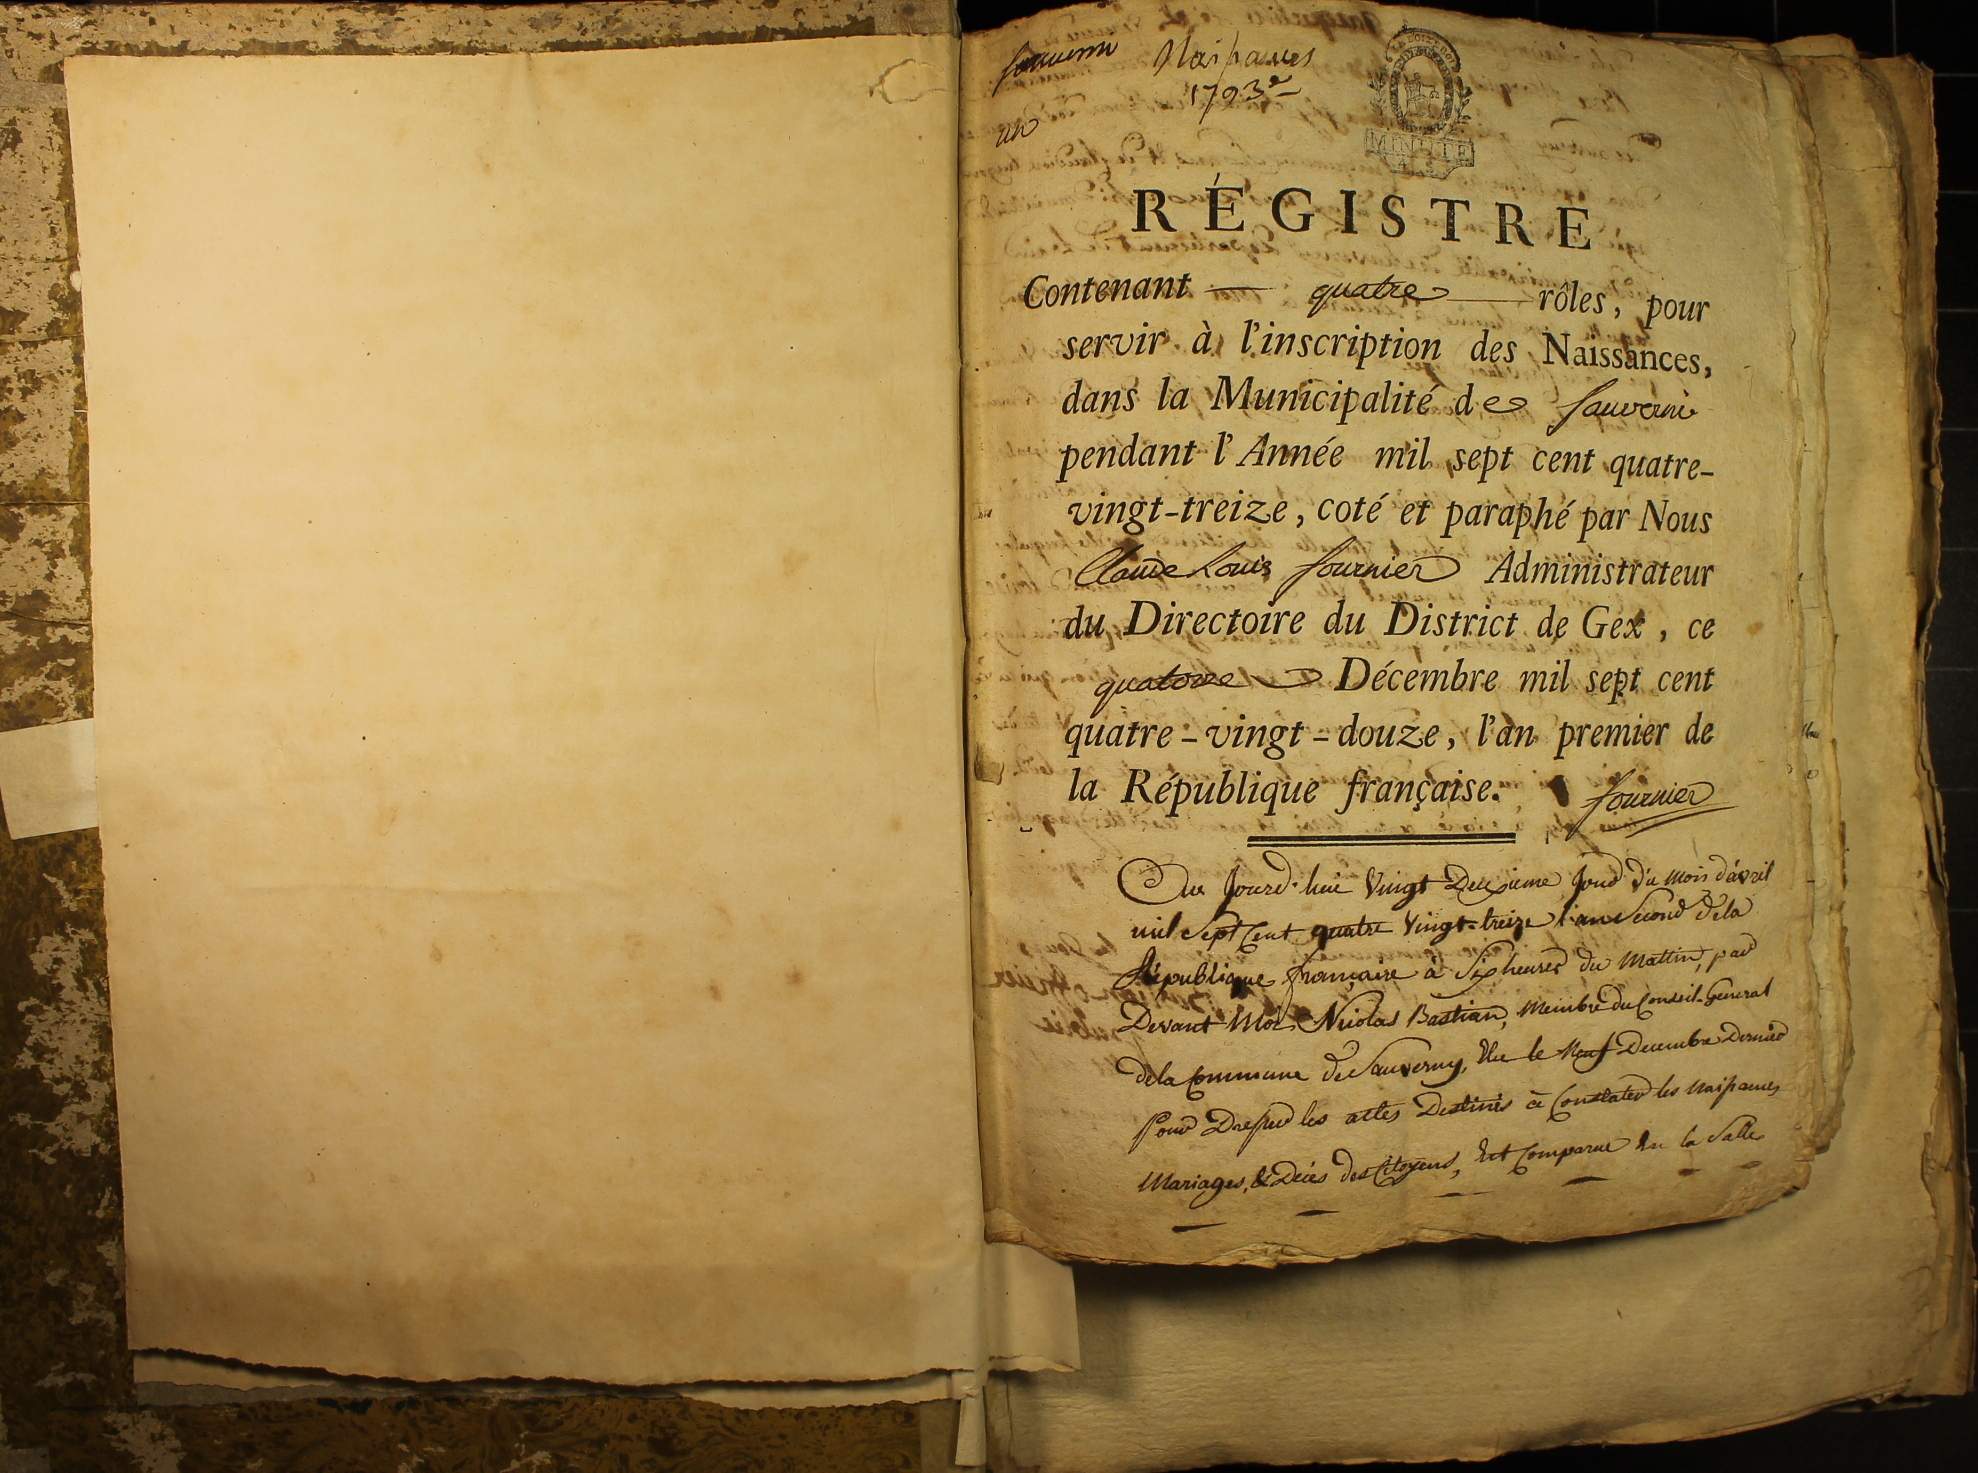 Sauverni Naissances
1793
un
LA LOI ET LE ROI
MINUTE
RÉGISTRE
Contenant — quatre — rôles, pour
servir à l'inscription des Naissances,
dans la Municipalité de Sauverni
pendant l'Année mil sept cent quatre-
vingt-treize, coté et paraphé par Nous
Claude Louis fournier Administrateur
du Directoire du District de Gex, ce
quatorze Décembre mil sept cent
quatre-vingt-douze, l'an premier de
la République française. fournier
Au Jourd'hui Vingt Deuxieme Jour du mois d'avril
mil Sept Cent quatre Vingt-treize l'an Second dela
République françaire à Six heures du Mattin, par
Devant Moi Nicolas Bastian, Membre du Conseil-General
dela Commune de Sauverny, Elu le Neuf Decembre Dernier
Pour Dresser les actes Destinés à Constater les Naissances
Mariages, & Décès des Citoyens, Est Comparue En la Salle